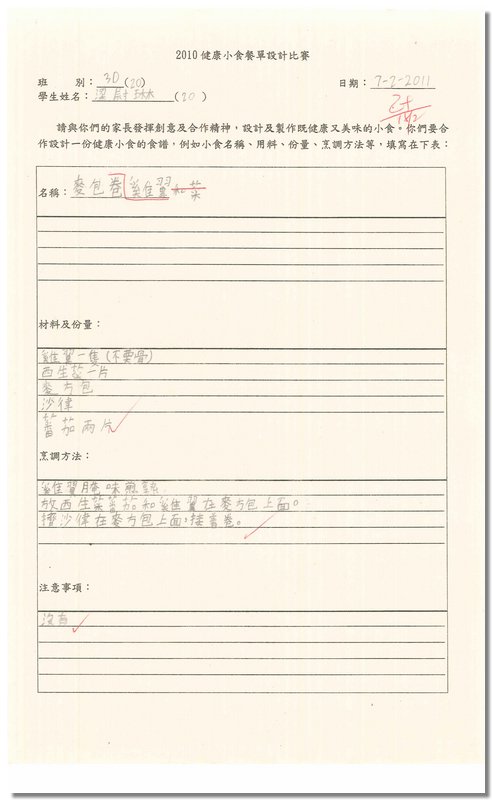 2010 健康小食餐單設計比賽
班 別： 3D (20) 日期： 7-2-2011
學生姓名： 梁尉琳 (20)
請與你們的家長發揮創意及合作精神，設計及製作既健康又美味的小食。你們要合
作設計一份健康小食的食譜，例如小食名稱、用料、份量、烹調方法等，填寫在下表：
名稱： 麥包卷雞翼和菜
材料及份量：
雞翼一隻(不要骨)
西生菜一片
麥方包
沙律
蕃茄兩片
烹調方法：
雞翼醃味煎熟
放西生菜蕃茄和雞翼在麥方包上面。
擠沙律在麥方包上面，接着卷。
注意事項：
沒有